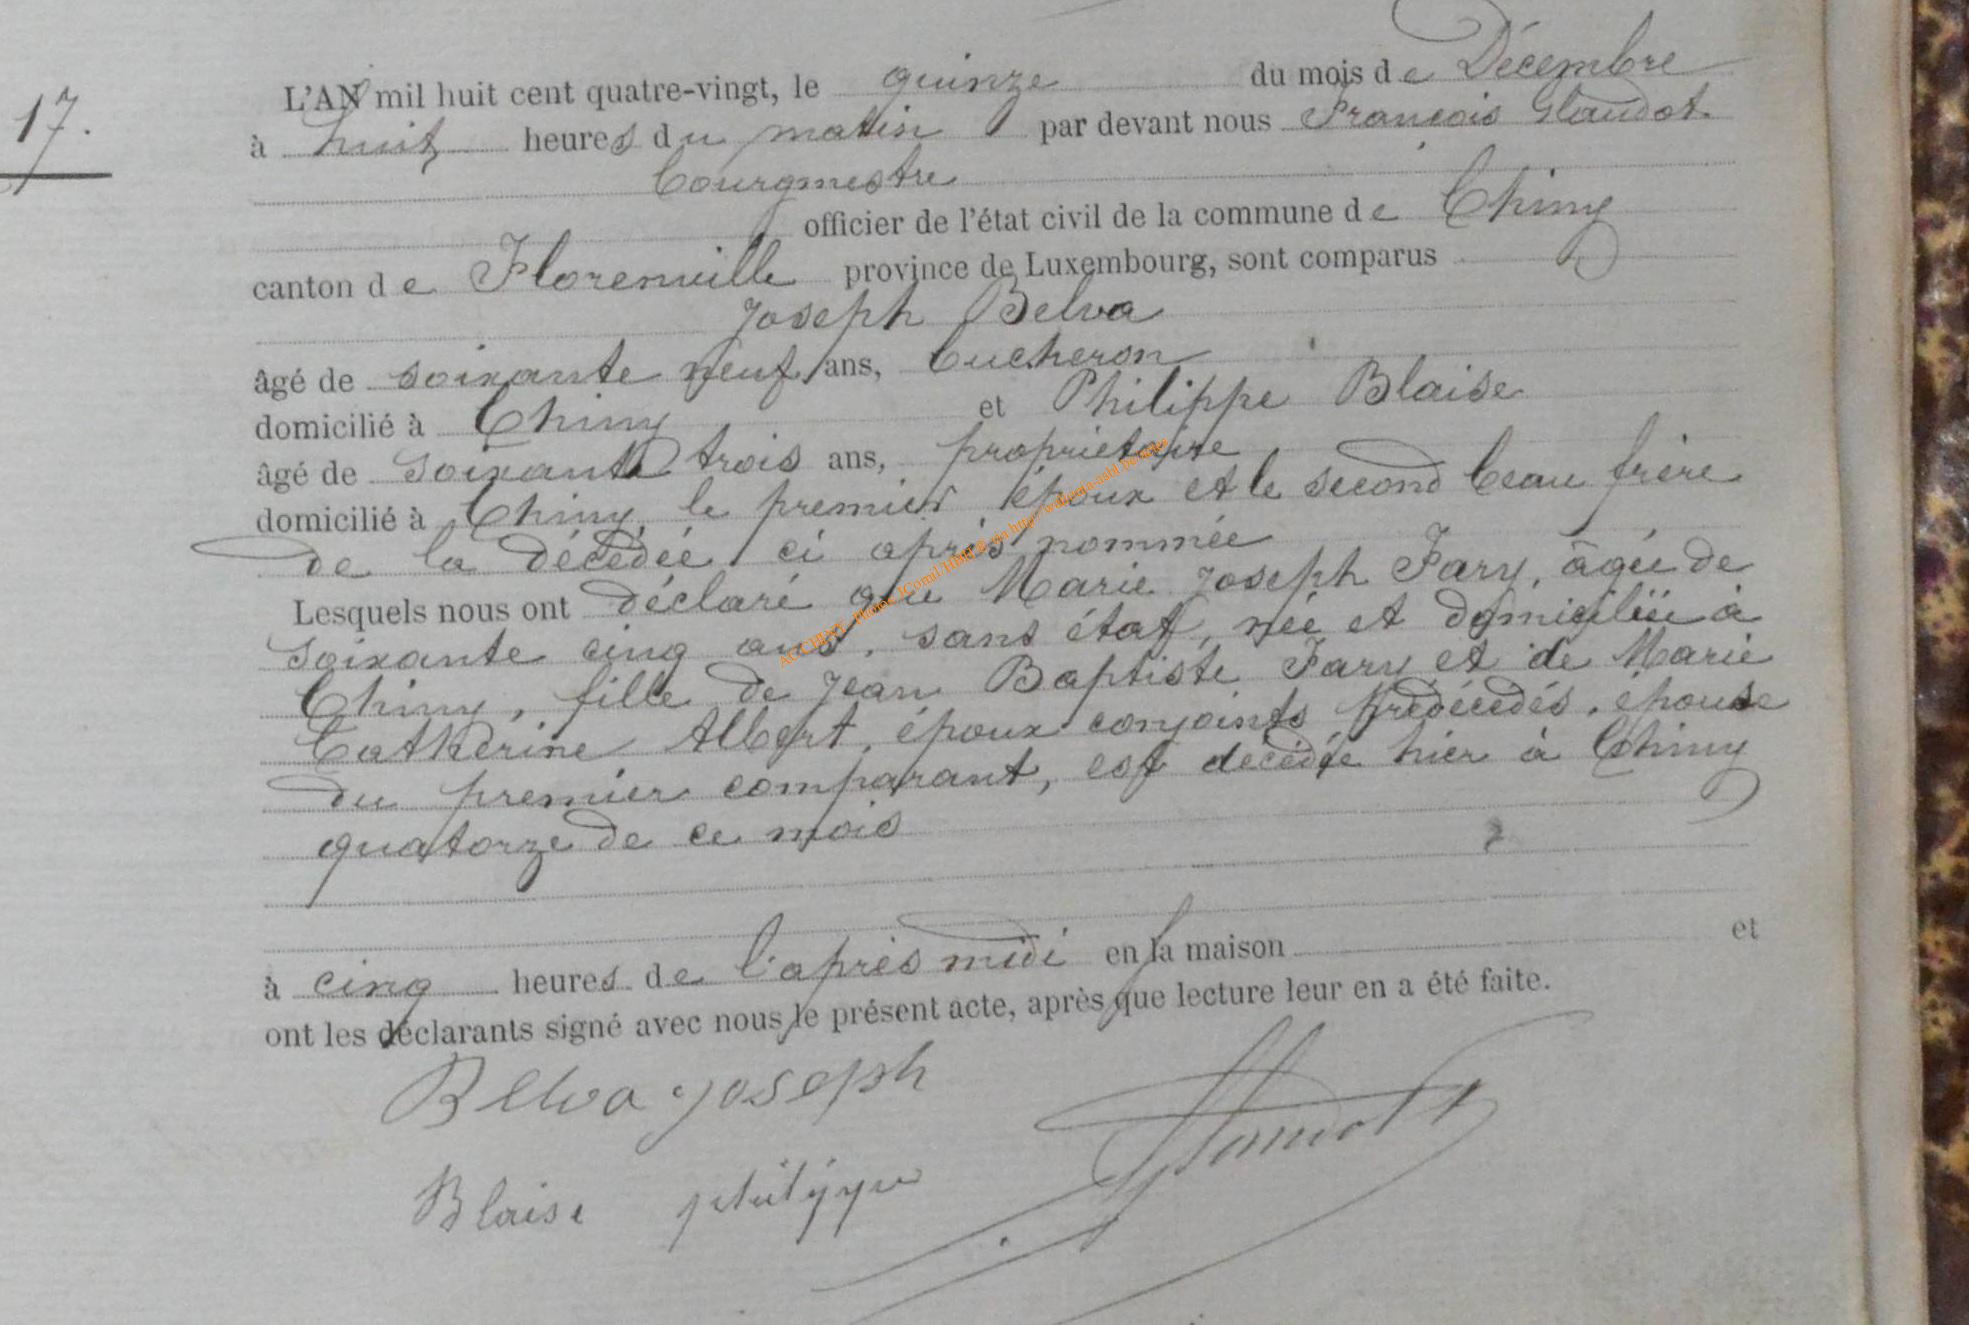 17.
L'AN mil huit cent quatre-vingt, le quinze du mois de Décembre
à huit heures du matin par devant nous François Glaudot
bourgmestre
officier de l'état civil de la commune de Chiny
canton de Florenville province de Luxembourg, sont comparus
Joseph Belva
âgé de soixante neuf ans, bucheron
domicilié à Chiny et Philippe Blaise
âgé de soixante trois ans, propriétaire
domicilié à Chiny, le premier époux et le second beau frère
de la décédée ci après nommée
Lesquels nous ont déclaré que Marie Joseph Fary, âgée de
soixante cinq ans, sans état, née et domiciliée à
Chiny, fille de Jean Baptiste Fary et de Marie
Catherine Albert, époux conjoints prédécédés, épouse
du premier comparant, est décédée hier à Chiny
quatorze de ce mois
à cinq heures de l'après midi en la maison et
ont les déclarants signé avec nous le présent acte, après que lecture leur en a été faite.
Belva joseph
Glaudot
Blaise philippe